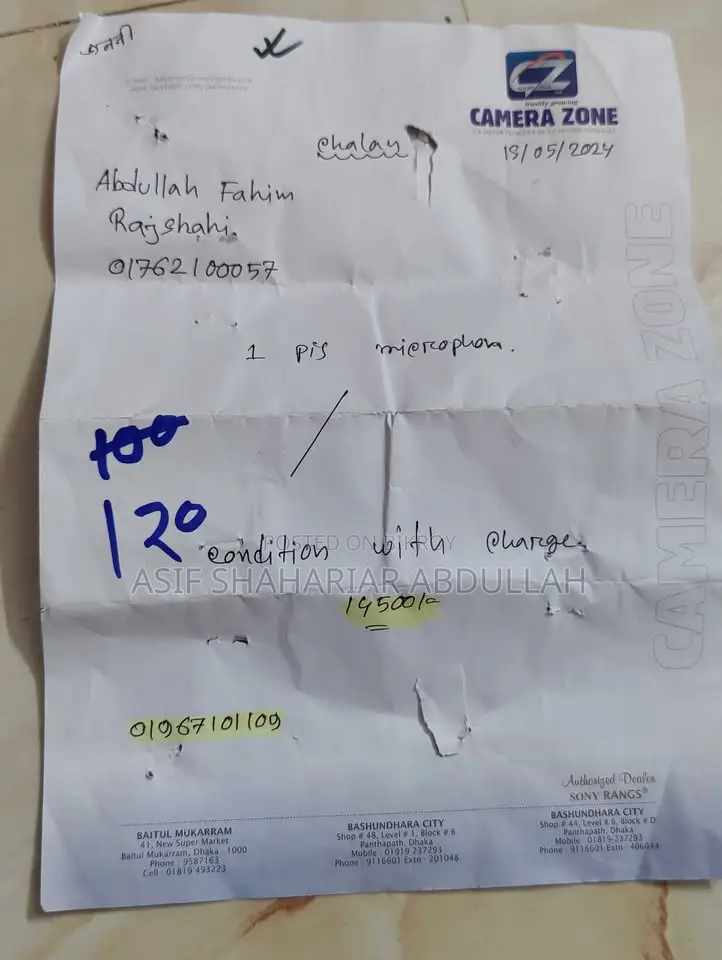 জননী
CZ
CAMERA ZONE
Chalan
19/05/2024
Abdullah Fahim
Rajshahi.
01762100057
1 pis microphon.
100
120
condition with charge.
POSTED ON BIKROY
ASIF SHAHARIAR ABDULLAH
14500/=
01967101109
CAMERA ZONE
Authorized Dealer
SONY RANGS®
BAITUL MUKARRAM
41, New Super Market
Baitul Mukarram, Dhaka 1000
Phone : 9587163
Cell : 01819 493223
BASHUNDHARA CITY
Shop # 48, Level # 1, Block # B
Panthapath, Dhaka
Mobile : 01919 237293
Phone : 9116601 Extn : 201048
BASHUNDHARA CITY
Shop # 44, Level # 6, Block # D
Panthapath, Dhaka
Mobile : 01819-237293
Phone : 9116601 Extn : 406044